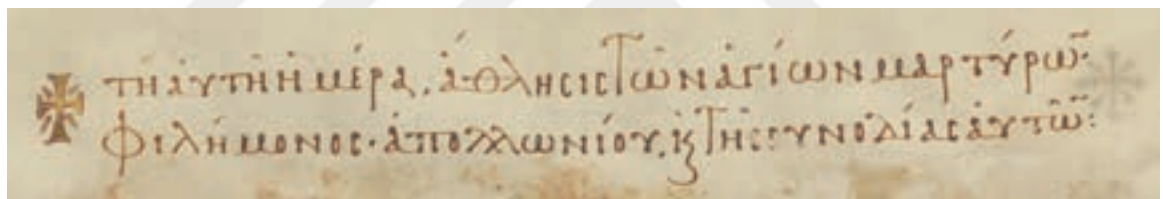 τῆ αὐτῆ ἡμέρα. ἄθλησις τῶν ἁγίων μαρτύρω̅·
Φιλήμονος· ἀπολλωνίου, κ̀ τῆς συνοδίας αὐτῶ̅: